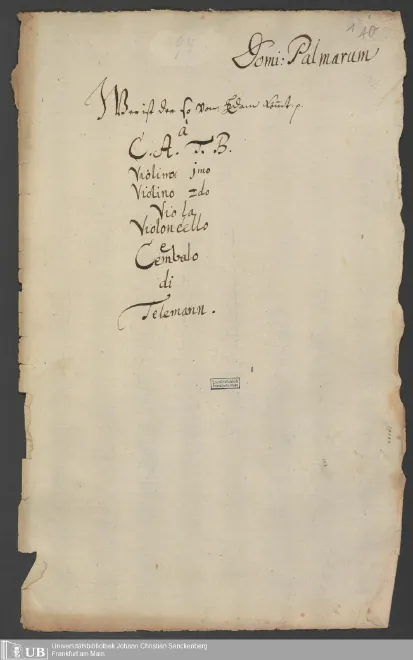 140
Domi: Palmarum
Wer ist der so von Edom kömt p.
à
C. A. T. B.
Violino jmo
Violino 2do
Viola
Violoncello
e
Cembalo
di
Telemann.
UB
Universitätsbibliothek Johann Christian Senckenberg
Frankfurt am Main